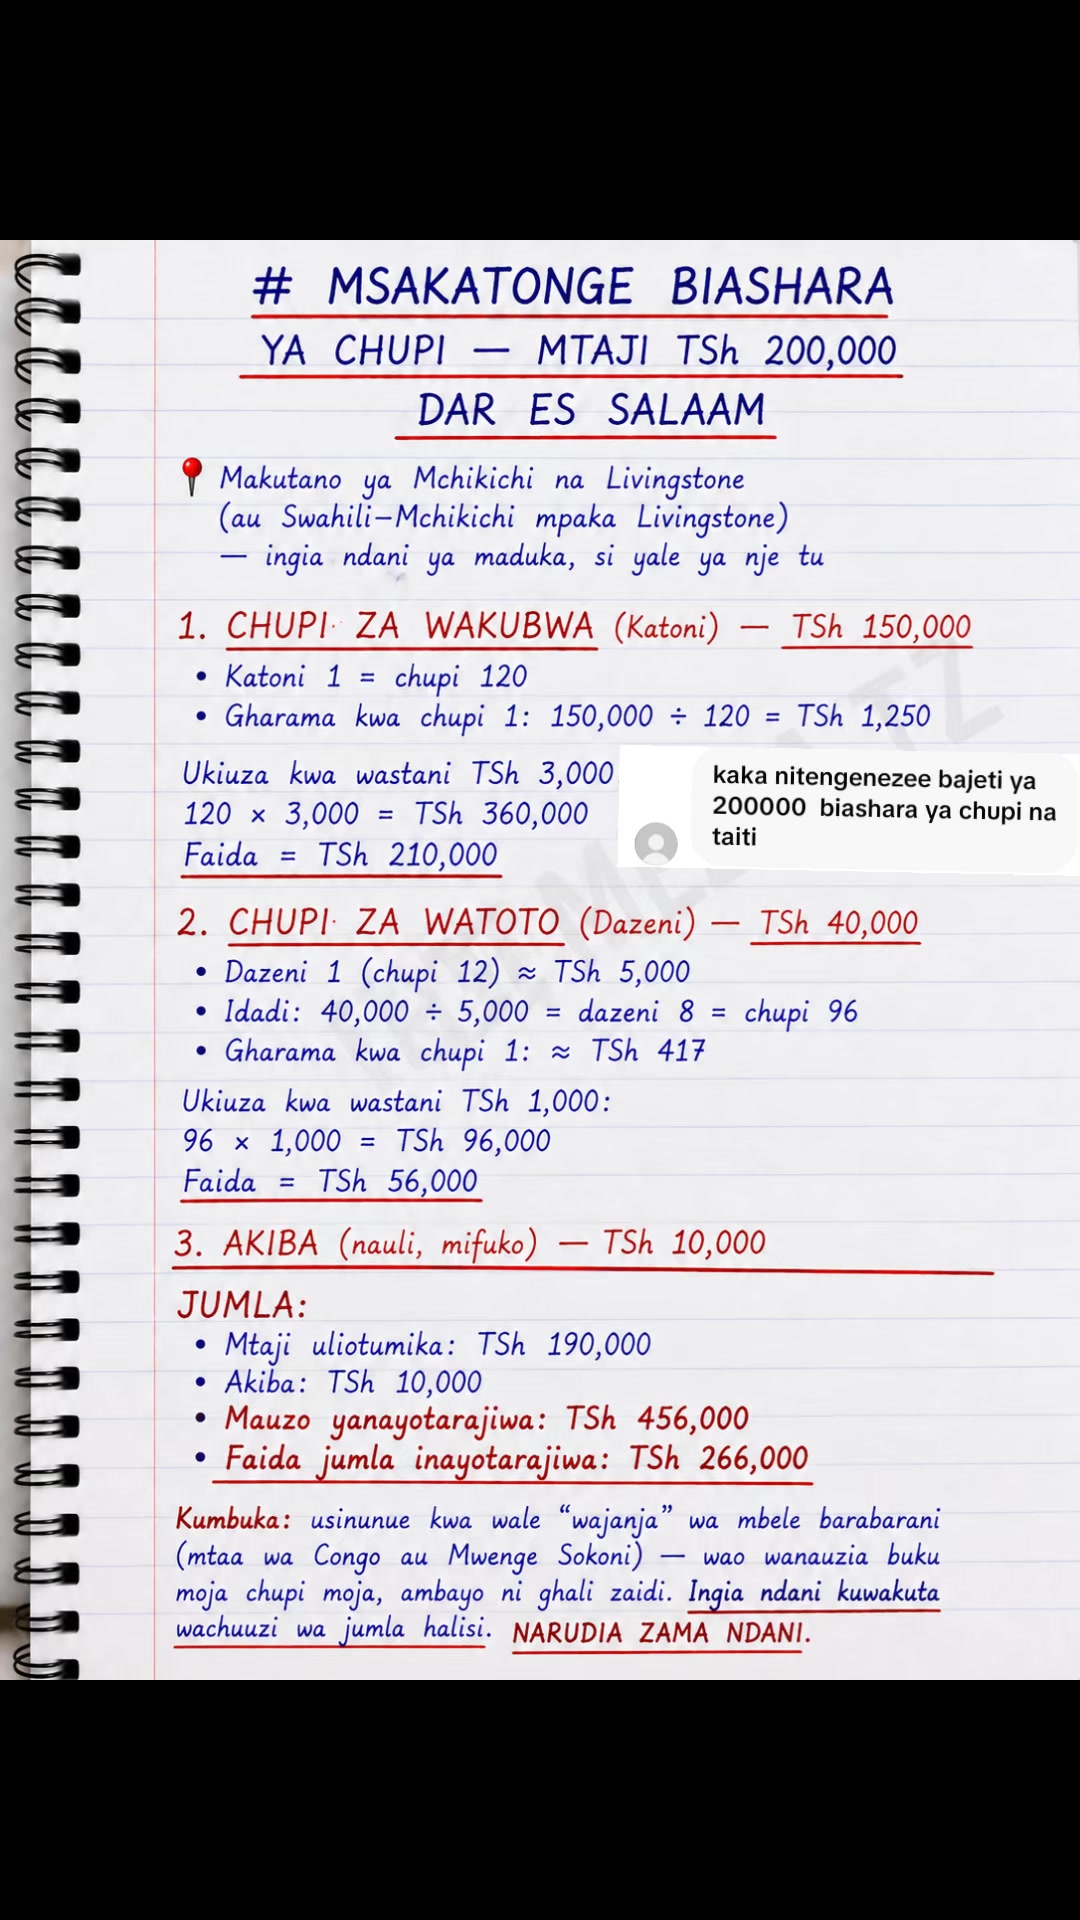 # MSAKATONGE BIASHARA
YA CHUPI — MTAJI TSh 200,000
DAR ES SALAAM
Makutano ya Mchikichi na Livingstone
(au Swahili–Mchikichi mpaka Livingstone)
— ingia ndani ya maduka, si yale ya nje tu
1. CHUPI ZA WAKUBWA (Katoni) — TSh 150,000
• Katoni 1 = chupi 120
• Gharama kwa chupi 1: 150,000 ÷ 120 = TSh 1,250
Ukiuza kwa wastani TSh 3,000
120 × 3,000 = TSh 360,000
Faida = TSh 210,000
kaka nitengenezee bajeti ya
200000 biashara ya chupi na
taiti
2. CHUPI ZA WATOTO (Dazeni) — TSh 40,000
• Dazeni 1 (chupi 12) ≈ TSh 5,000
• Idadi: 40,000 ÷ 5,000 = dazeni 8 = chupi 96
• Gharama kwa chupi 1: ≈ TSh 417
Ukiuza kwa wastani TSh 1,000:
96 × 1,000 = TSh 96,000
Faida = TSh 56,000
3. AKIBA (nauli, mifuko) — TSh 10,000
JUMLA:
• Mtaji uliotumika: TSh 190,000
• Akiba: TSh 10,000
• Mauzo yanayotarajiwa: TSh 456,000
• Faida jumla inayotarajiwa: TSh 266,000
Kumbuka: usinunue kwa wale “wajanja” wa mbele barabarani
(mtaa wa Congo au Mwenge Sokoni) — wao wanauzia buku
moja chupi moja, ambayo ni ghali zaidi. Ingia ndani kuwakuta
wachuuzi wa jumla halisi. NARUDIA ZAMA NDANI.